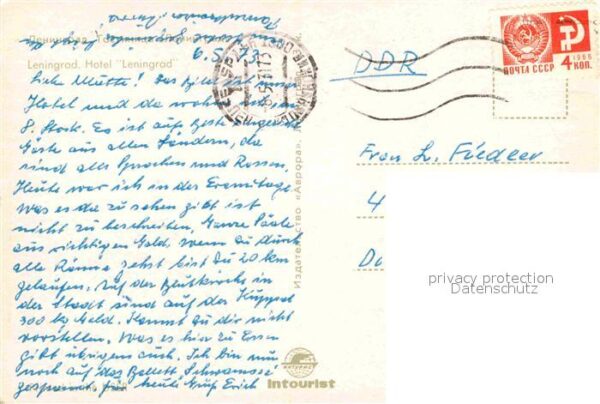 Leningrad. Hotel "Leningrad"
6.5.73
Liebe Mutti! Das Bild ist unser
Hotel und da wohnen wir im
8. Stock. Es ist aufs Beste eingerichtet
Gäste aus allen Ländern, da
sind alle Sprachen und Rassen.
Heute war ich in der Eremitage
Was es da zu sehen gibt ist
nicht zu beschreiben, Ganze Säle
aus richtigen Gold. Wenn du durch
alle Räume gehst bist Du 20 km
gelaufen. Auf der Blutkirche in
der Stadt sind auf der Kuppel
300 kg Gold. Kannst Du dir nicht
vorstellen. Was es hier zu Essen
gibt übrigens auch. Ich bin nun
noch auf das Ballett Schwanensee
gespannt für heute Gruß Erich
Издательство «Аврора».
Intourist
ПОЧТА СССР
1966
4 КОП.
DDR
Frau L. Fiedler
4
privacy protection
Datenschutz